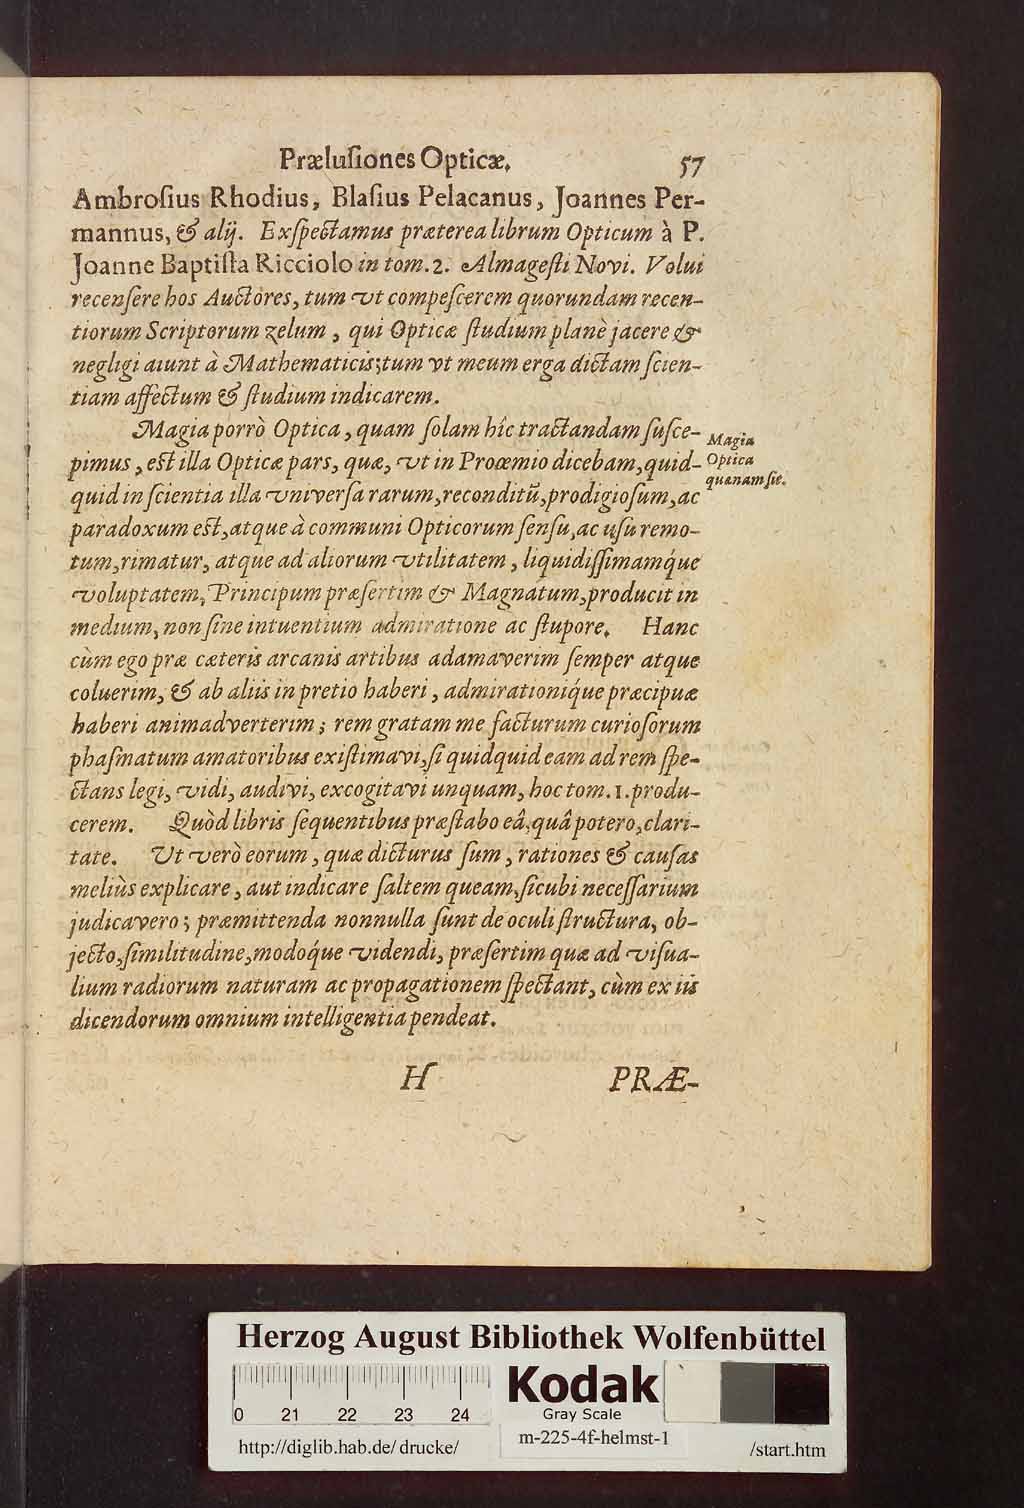 Prælusiones Opticæ. 57
Ambroſius Rhodius, Blaſius Pelacanus, Joannes Per-
mannus, & alij. Exſpectamus præterea librum Opticum à P.
Joanne Baptiſta Ricciolo in tom. 2. Almageſti Novi. Volui
recenſere hos Auctores, tum vt compeſcerem quorundam recen-
tiorum Scriptorum zelum, qui Opticæ ſtudium planè jacere &
negligi aiunt à Mathematicis; tum vt meum erga dictam ſcien-
tiam affectum & ſtudium indicarem.
Magia porrò Optica, quam ſolam hîc tractandam ſuſce-
pimus, eſt illa Opticæ pars, quæ, vt in Proœmio dicebam, quid-
quid in ſcientia illa vniverſa rarum, reconditũ, prodigioſum, ac
paradoxum eſt, atque à communi Opticorum ſenſu, ac uſu remo-
tum, rimatur, atque ad aliorum vtilitatem, liquidiſſimamq́ue
voluptatem, Principum præſertim & Magnatum, producit in
medium, non ſine intuentium admiratione ac ſtupore. Hanc
cùm ego præ cæteris arcanis artibus adamaverim ſemper atque
coluerim, & ab aliis in pretio haberi, admirationiq́ue præcipuæ
haberi animadverterim; rem gratam me facturum curioſorum
phaſmatum amatoribus exiſtimavi, ſi quidquid eam ad rem ſpe-
ctans legi, vidi, audivi, excogitavi unquam, hoc tom. 1. produ-
cerem. Quòd libris ſequentibus præſtabo eâ, quâ potero, clari-
tate. Ut verò eorum, quæ dicturus ſum, rationes & cauſas
meliùs explicare, aut indicare ſaltem queam, ſicubi neceſſarium
judicavero; præmittenda nonnulla ſunt de oculi ſtructura, ob-
jecto, ſimilitudine, modoq́ue videndi, præſertim quæ ad viſua-
lium radiorum naturam ac propagationem ſpectant, cùm ex iis
dicendorum omnium intelligentia pendeat.
Magia
Optica
quænam ſit.
H PRÆ-
Herzog August Bibliothek Wolfenbüttel
0 21 22 23 24
Kodak
Gray Scale
http://diglib.hab.de/drucke/ m-225-4f-helmst-1 /start.htm